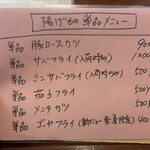 揚げもの 単品メニュー
単品 豚ロースカツ 900
単品 サバフライ(入荷時のみ) 1000
単品 ミニサバフライ(入荷時のみ) 520
単品 茄子フライ 500
単品 メンチカツ 520
単品 ゴーヤフライ 400